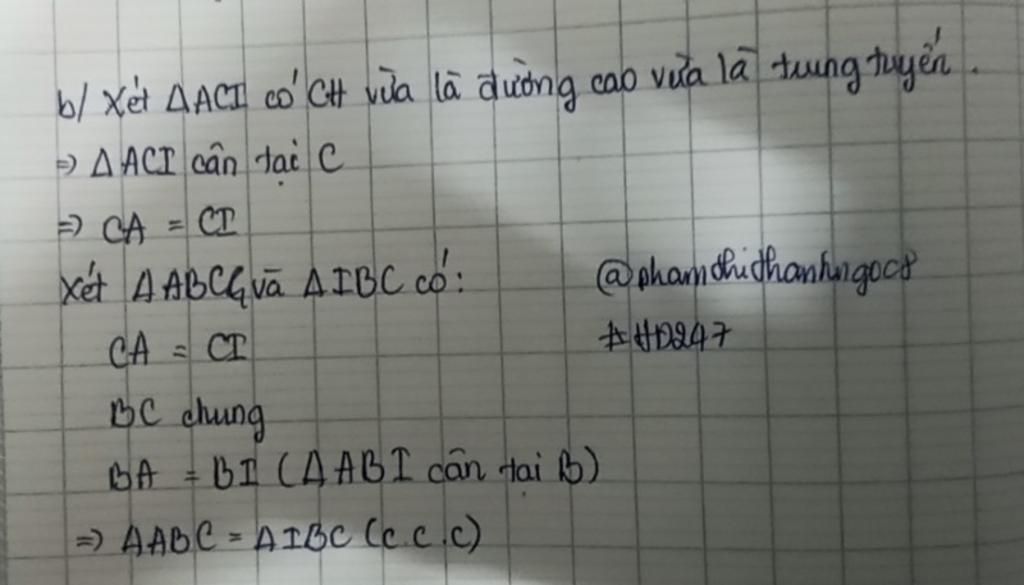 b/ Xét ΔACI có CH vừa là đường cao vừa là trung tuyến.
⇒ ΔACI cân tại C
⇒ CA = CI
Xét ΔABC và ΔIBC có:
@phamthithanhngoc8
#HD247
CA = CI
BC chung
BA = BI (ΔABI cân tại B)
⇒ ΔABC = ΔIBC (c.c.c)